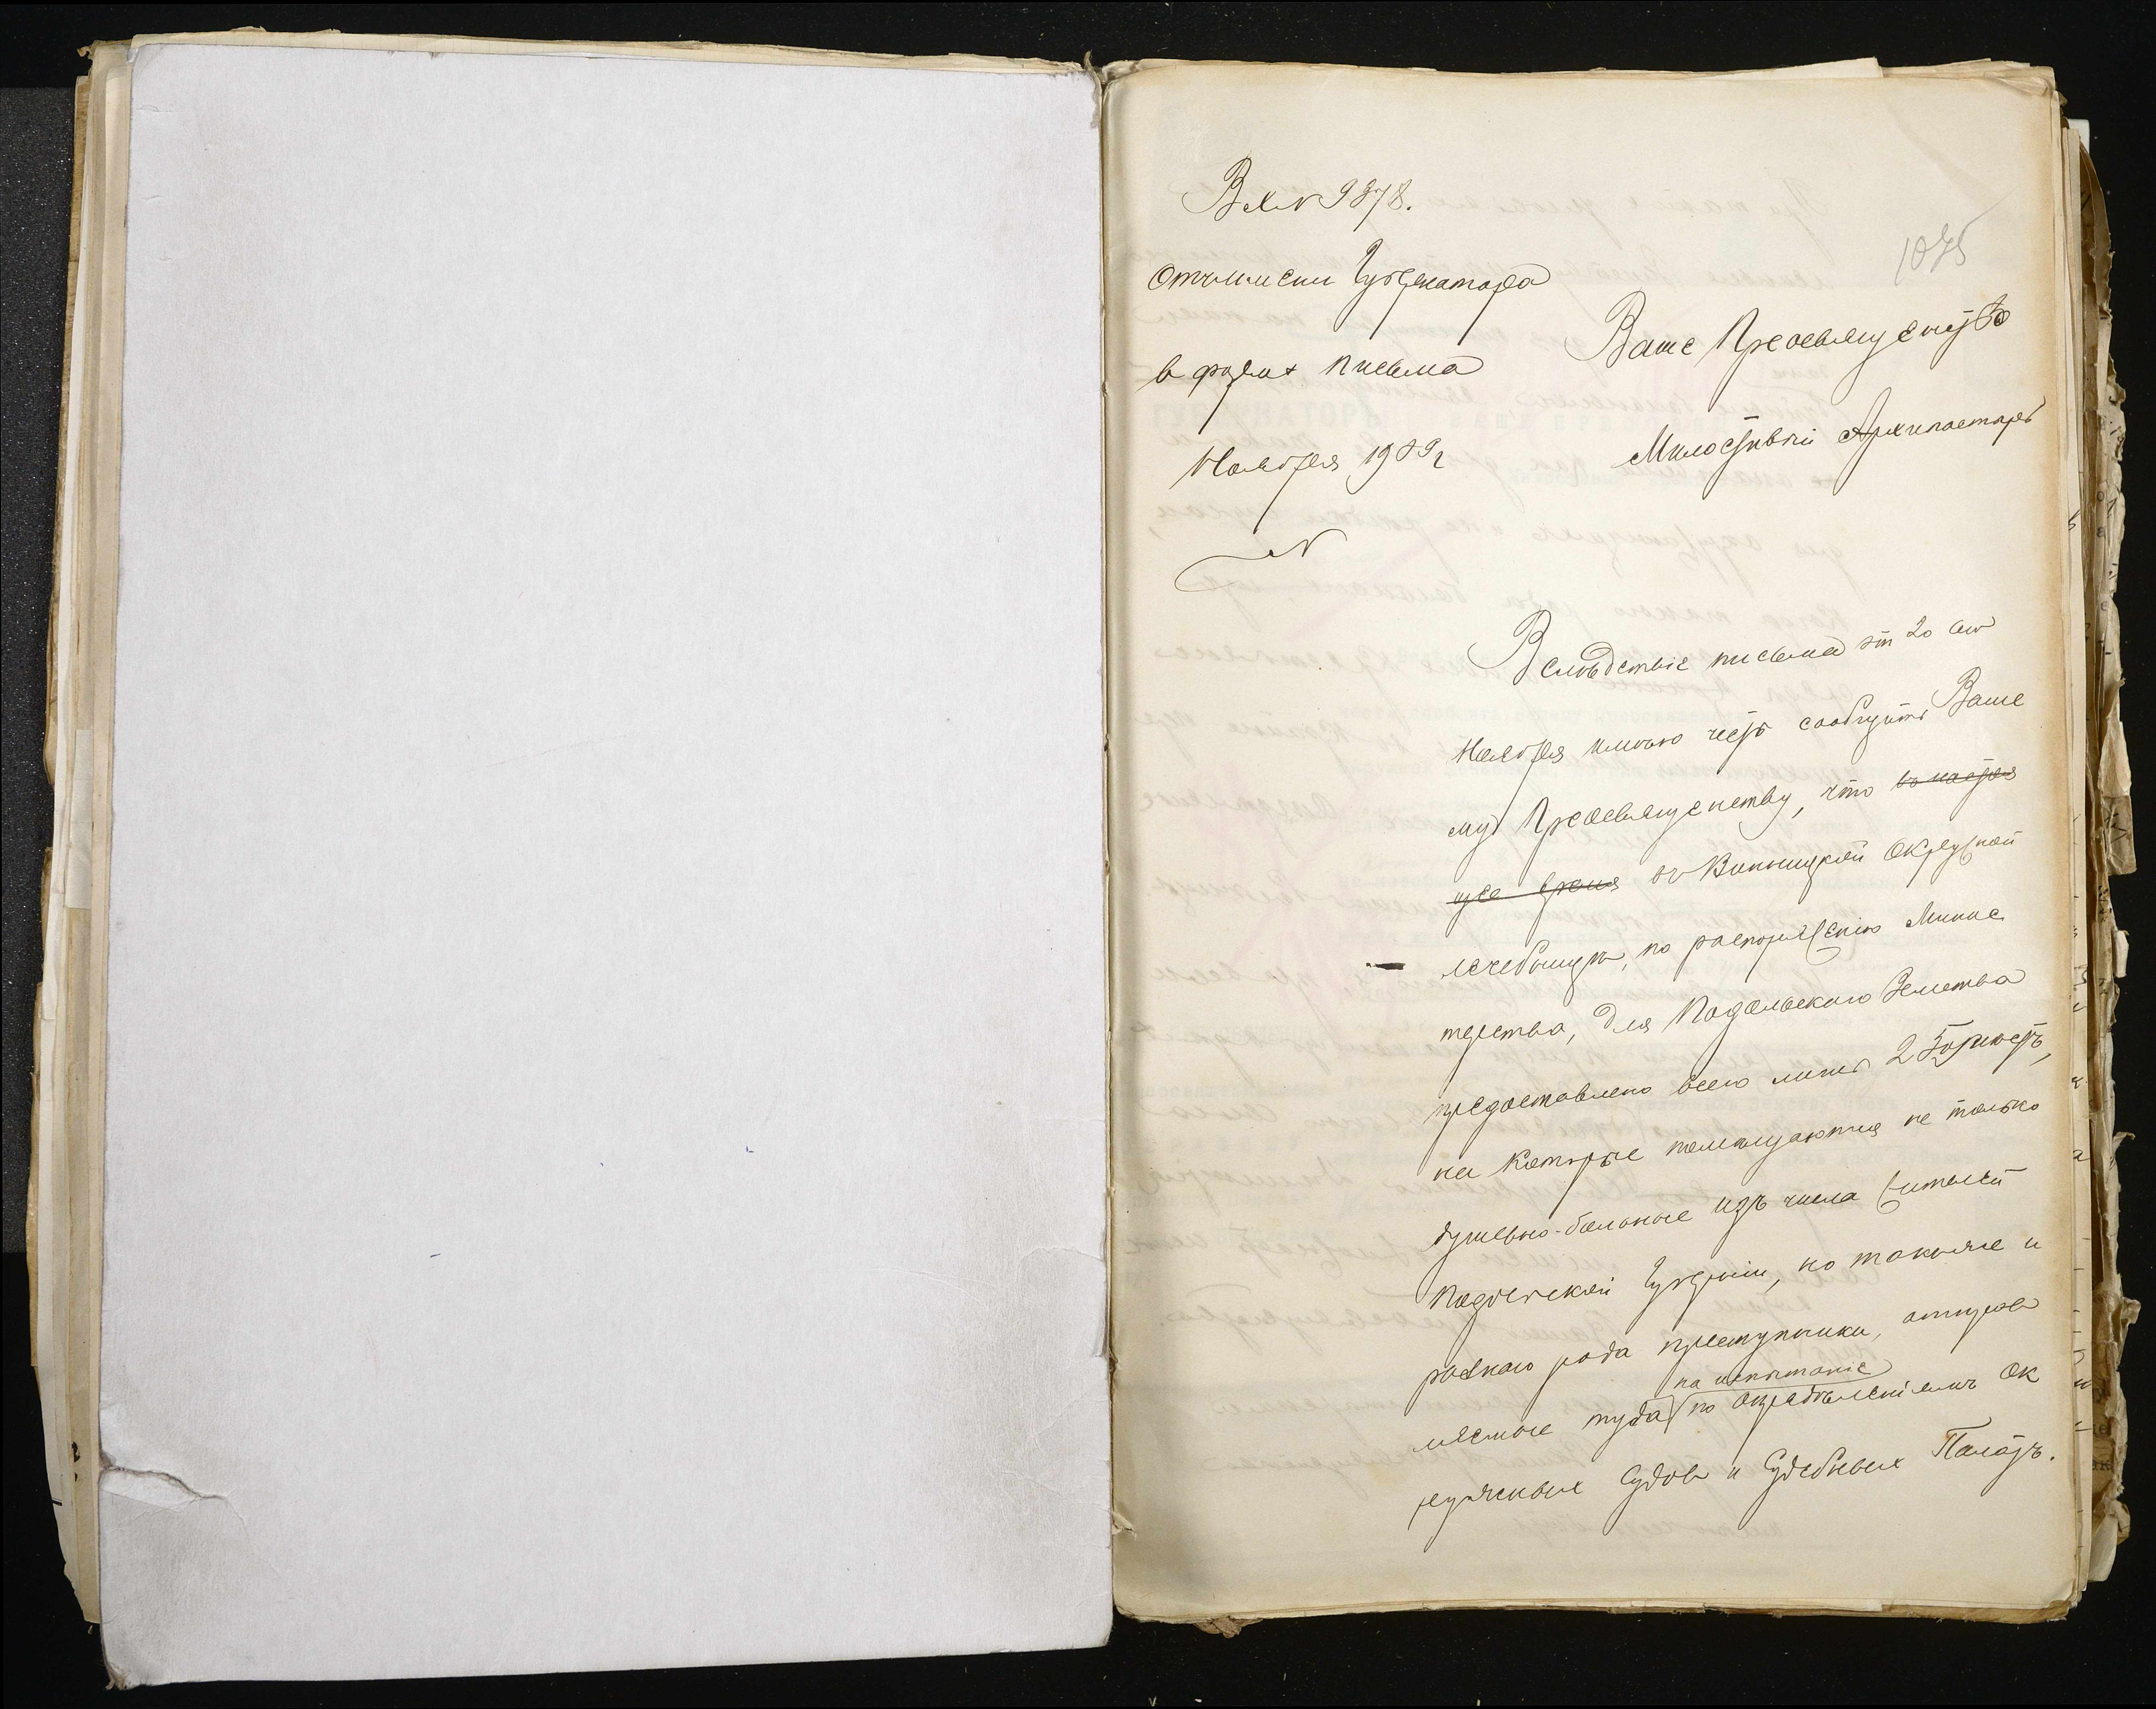 Вх № 9878.
1075
От имени Губернатора
в форме письма
Ваше Преосвященство
Милостивый Архипастырь
Ноября 1909 г
№
Вследствіе письма от 20 сего
Ноября имею честь сообщить Ваше
му Преосвященству, что въ настоя
щее время въ Винницкой Окружной
лечебнице, по распоряженію Минис
терства, для Подольскаго Земства
предоставлено всего лишь 25 местъ,
на которые помещаются не только
душевно-больные изъ числа жителей
Подольской Губерніи, но также и
разнаго рода преступники, отправ
ляемые туда на испытаніе по определеніямъ Ок
ружныхъ Судов и Судебных Палатъ.